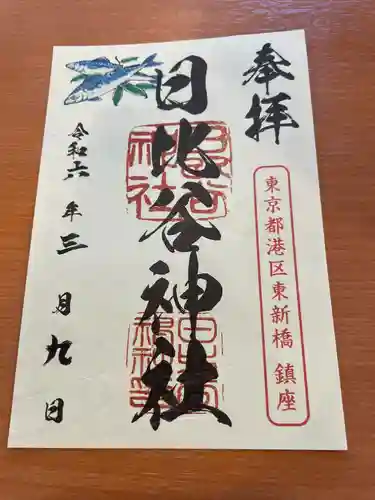 奉拝
東京都港区東新橋 鎮座
日比谷神社
令和六年三月九日